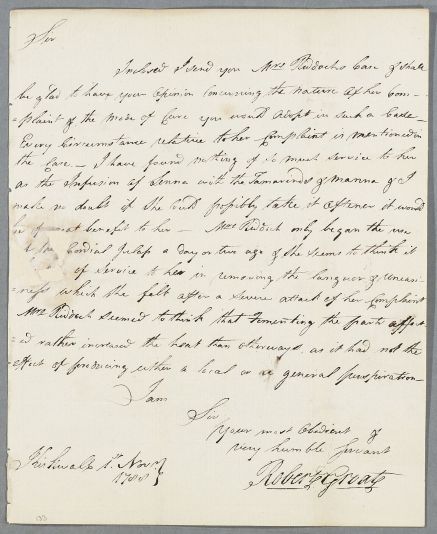 Sir
Inclosed I send you Mrs Riddochs Case & shall
be glad to have your Opinion concerning the nature of her Com-
-plaint & the mode of Cure you would adopt in such a Case
Every Circumstance relative to her Complaint is mentioned in
the Case — I have found nothing of so much service to her
as the Infusion of Senna with the Tamarinds & Manna & I
make no doubt if she could possibly take it oftener it would
be of great benefit to her — Mrs Riddoch only began the use
the Cordial Julap a day or two ago & she seems to think it
of service to her in removing the languor & uneasi-
-ness which she felt after a severe attack of her Complaint
Mrs Riddoch seemed to think that Fomenting the parts affect
-ed rather increased the heat than otherways, as it had not the
effect of producing either a local or a general perspiration —
I am
Sir
Your most Obedient &
very humble Servant
Robert Groat
Kirkwall 1st Novr
1788